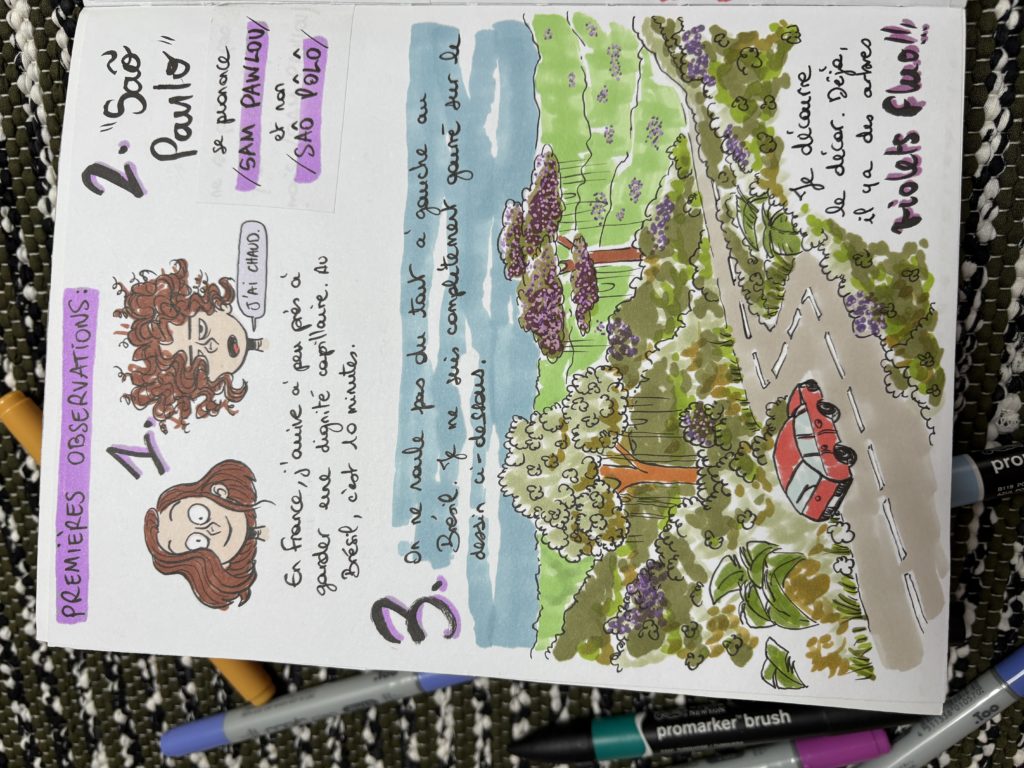 PREMIÈRES OBSERVATIONS:
1.
J'AI CHAUD.
En France, j'arrive à peu près à
garder une dignité capillaire. Au
Brésil, c'est 10 minutes.
2. "Saõ
Paulo"
se prononce
/SAM PAWLOU/
et non
/SAÕ PÔLÔ/
3. On ne roule pas du tout à gauche au
Brésil. Je me suis complètement gourré sur le
dessin ci-dessous.
Je découvre
le décor. Déjà,
il y a des arbres
violets fluo!!!
promarker brush
Too